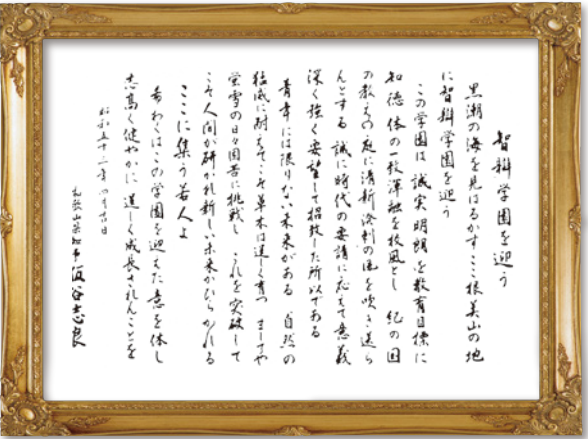 智辯学園を迎う
黒潮の海を見はるかすここ根美山の地
に智辯学園を迎う
この学園は 誠実 明朗を教育目標に
知徳体の一致渾融を校風とし 紀の国
の教えの庭に清新溌剌の風を吹き送ら
んとする 誠に時代の要請に応えて意義
深く強く要望して招致した所以である
青年には限りない未来がある 自然の
猛威に耐えてこそ草木は逞しく育つ ましてや
蛍雪の日々困苦に挑戦し これを突破して
こそ人間が研かれ新しい未来がひらかれる
ここに集う若人よ
希わくはこの学園を迎えた意を体し
志高く健やかに 逞しく成長されんことを
昭和五十三年四月吉日
和歌山県知事 仮谷志良